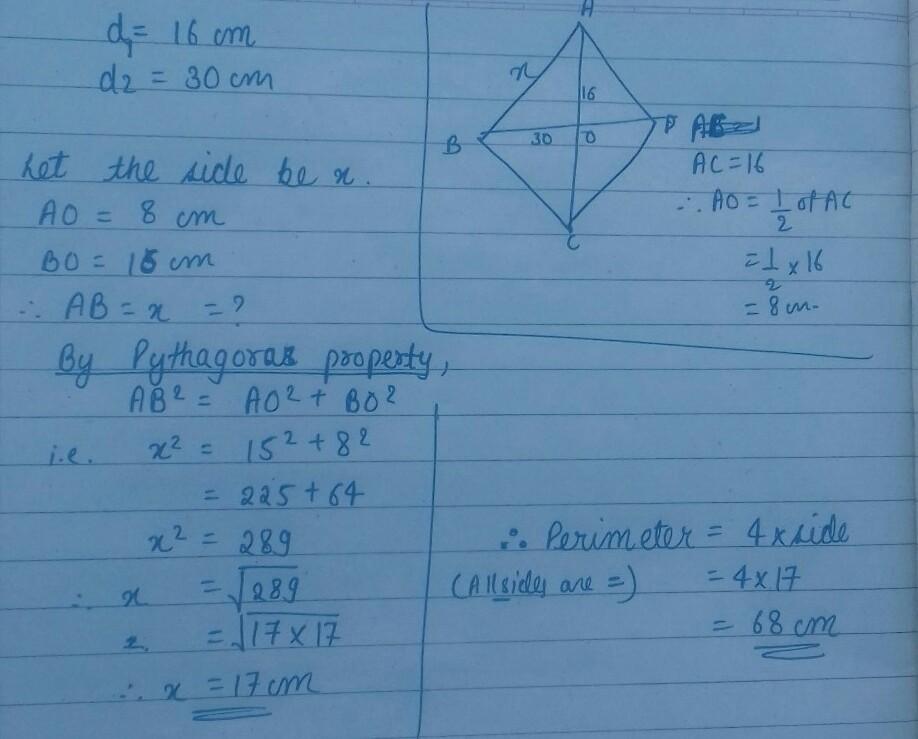 d1 = 16 cm
d2 = 30 cm
Let the side be x.
AO = 8 cm
BO = 15 cm
∴ AB = x = ?
A
x
16
B
30
O
D
C
AC = 16
∴ AO = 1/2 of AC
= 1/2 x 16
= 8 cm
By Pythagoras property,
AB² = AO² + BO²
i.e. x² = 15² + 8²
= 225 + 64
x² = 289
∴ x = √289
= √17 x 17
∴ x = 17 cm
∴ Perimeter = 4 x side
(All sides are =) = 4 x 17
= 68 cm